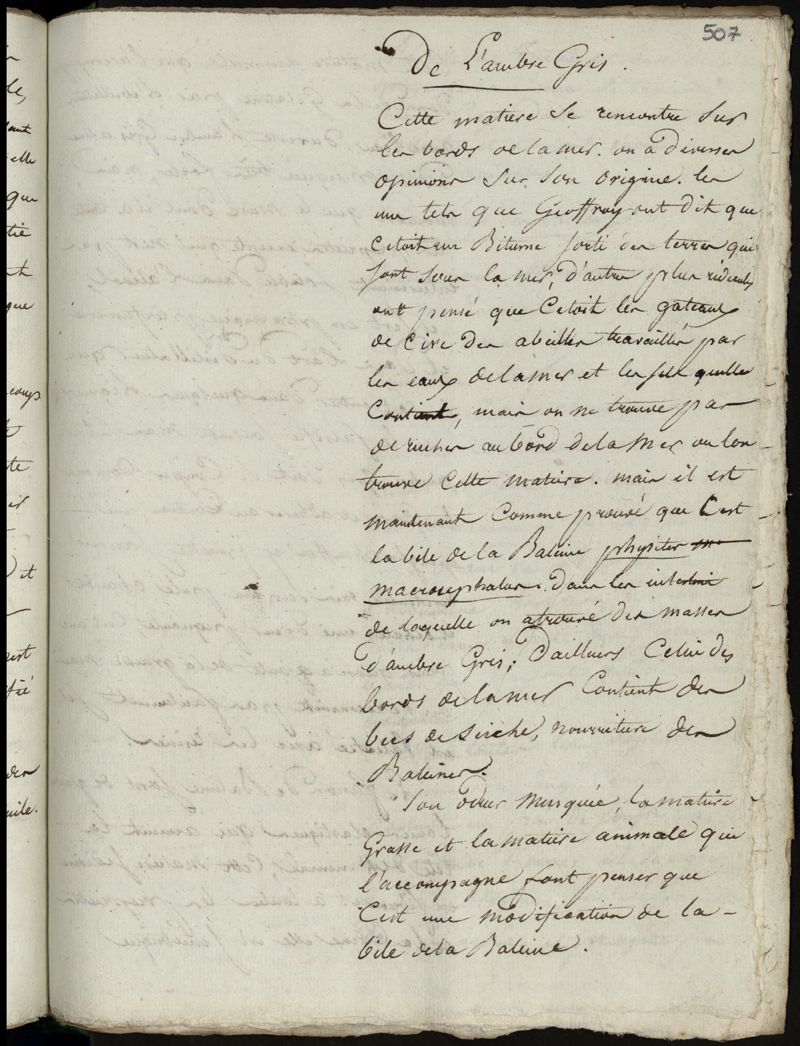 507
De L'ambre Gris.
Cette matiere se rencontre sur
les bords de la mer. on a diverses
opinions sur son origine. les
uns tels que Geoffroy ont dit que
c'etoit un Bitume sorti des terres qui
sont sous la mer, d'autres plus ridicules
ont pensé que c'etoit les gâteaux
de cire des abeilles travaillés par
les eaux de la mer et les sels quelle
contient, mais on ne trouve pas
de ruches au bord de la mer ou lon
trouve cette matiere. mais il est
maintenant comme prouvé que c'est
la bile de la Baleine physiter m
macrocephalus. dans les intestins
de laquelle on a trouvé des masses
d'ambre Gris; d'ailleurs celui des
bords de la mer contient des
becs de seiche, nourriture des
Baleines.
Son odeur musquée, la matiere
Grasse et la matiere animale qui
l'accompagne font penser que
c'est une modification de la
bile de la Baleine.